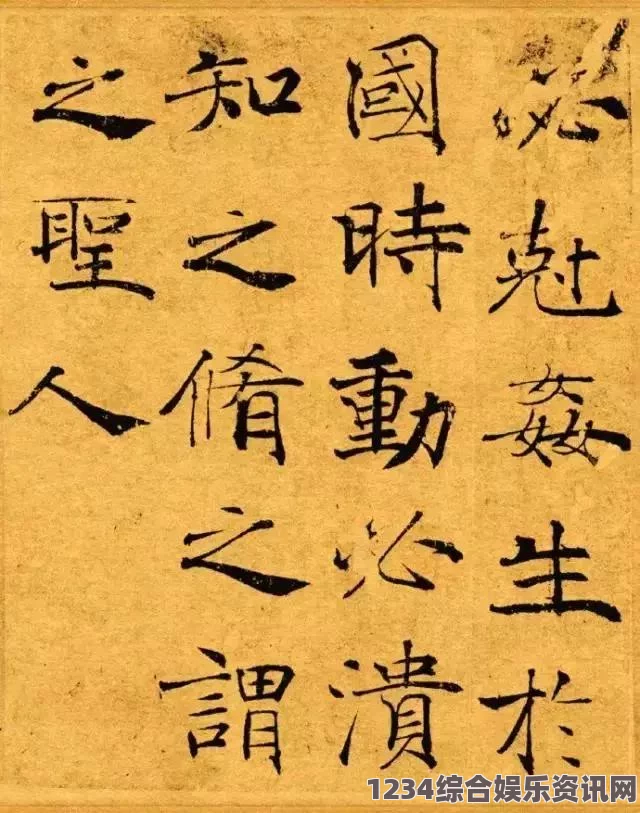 必尅姦生於
國時動必潰
知之脩之謂
之聖人
1234综合娱乐资讯网